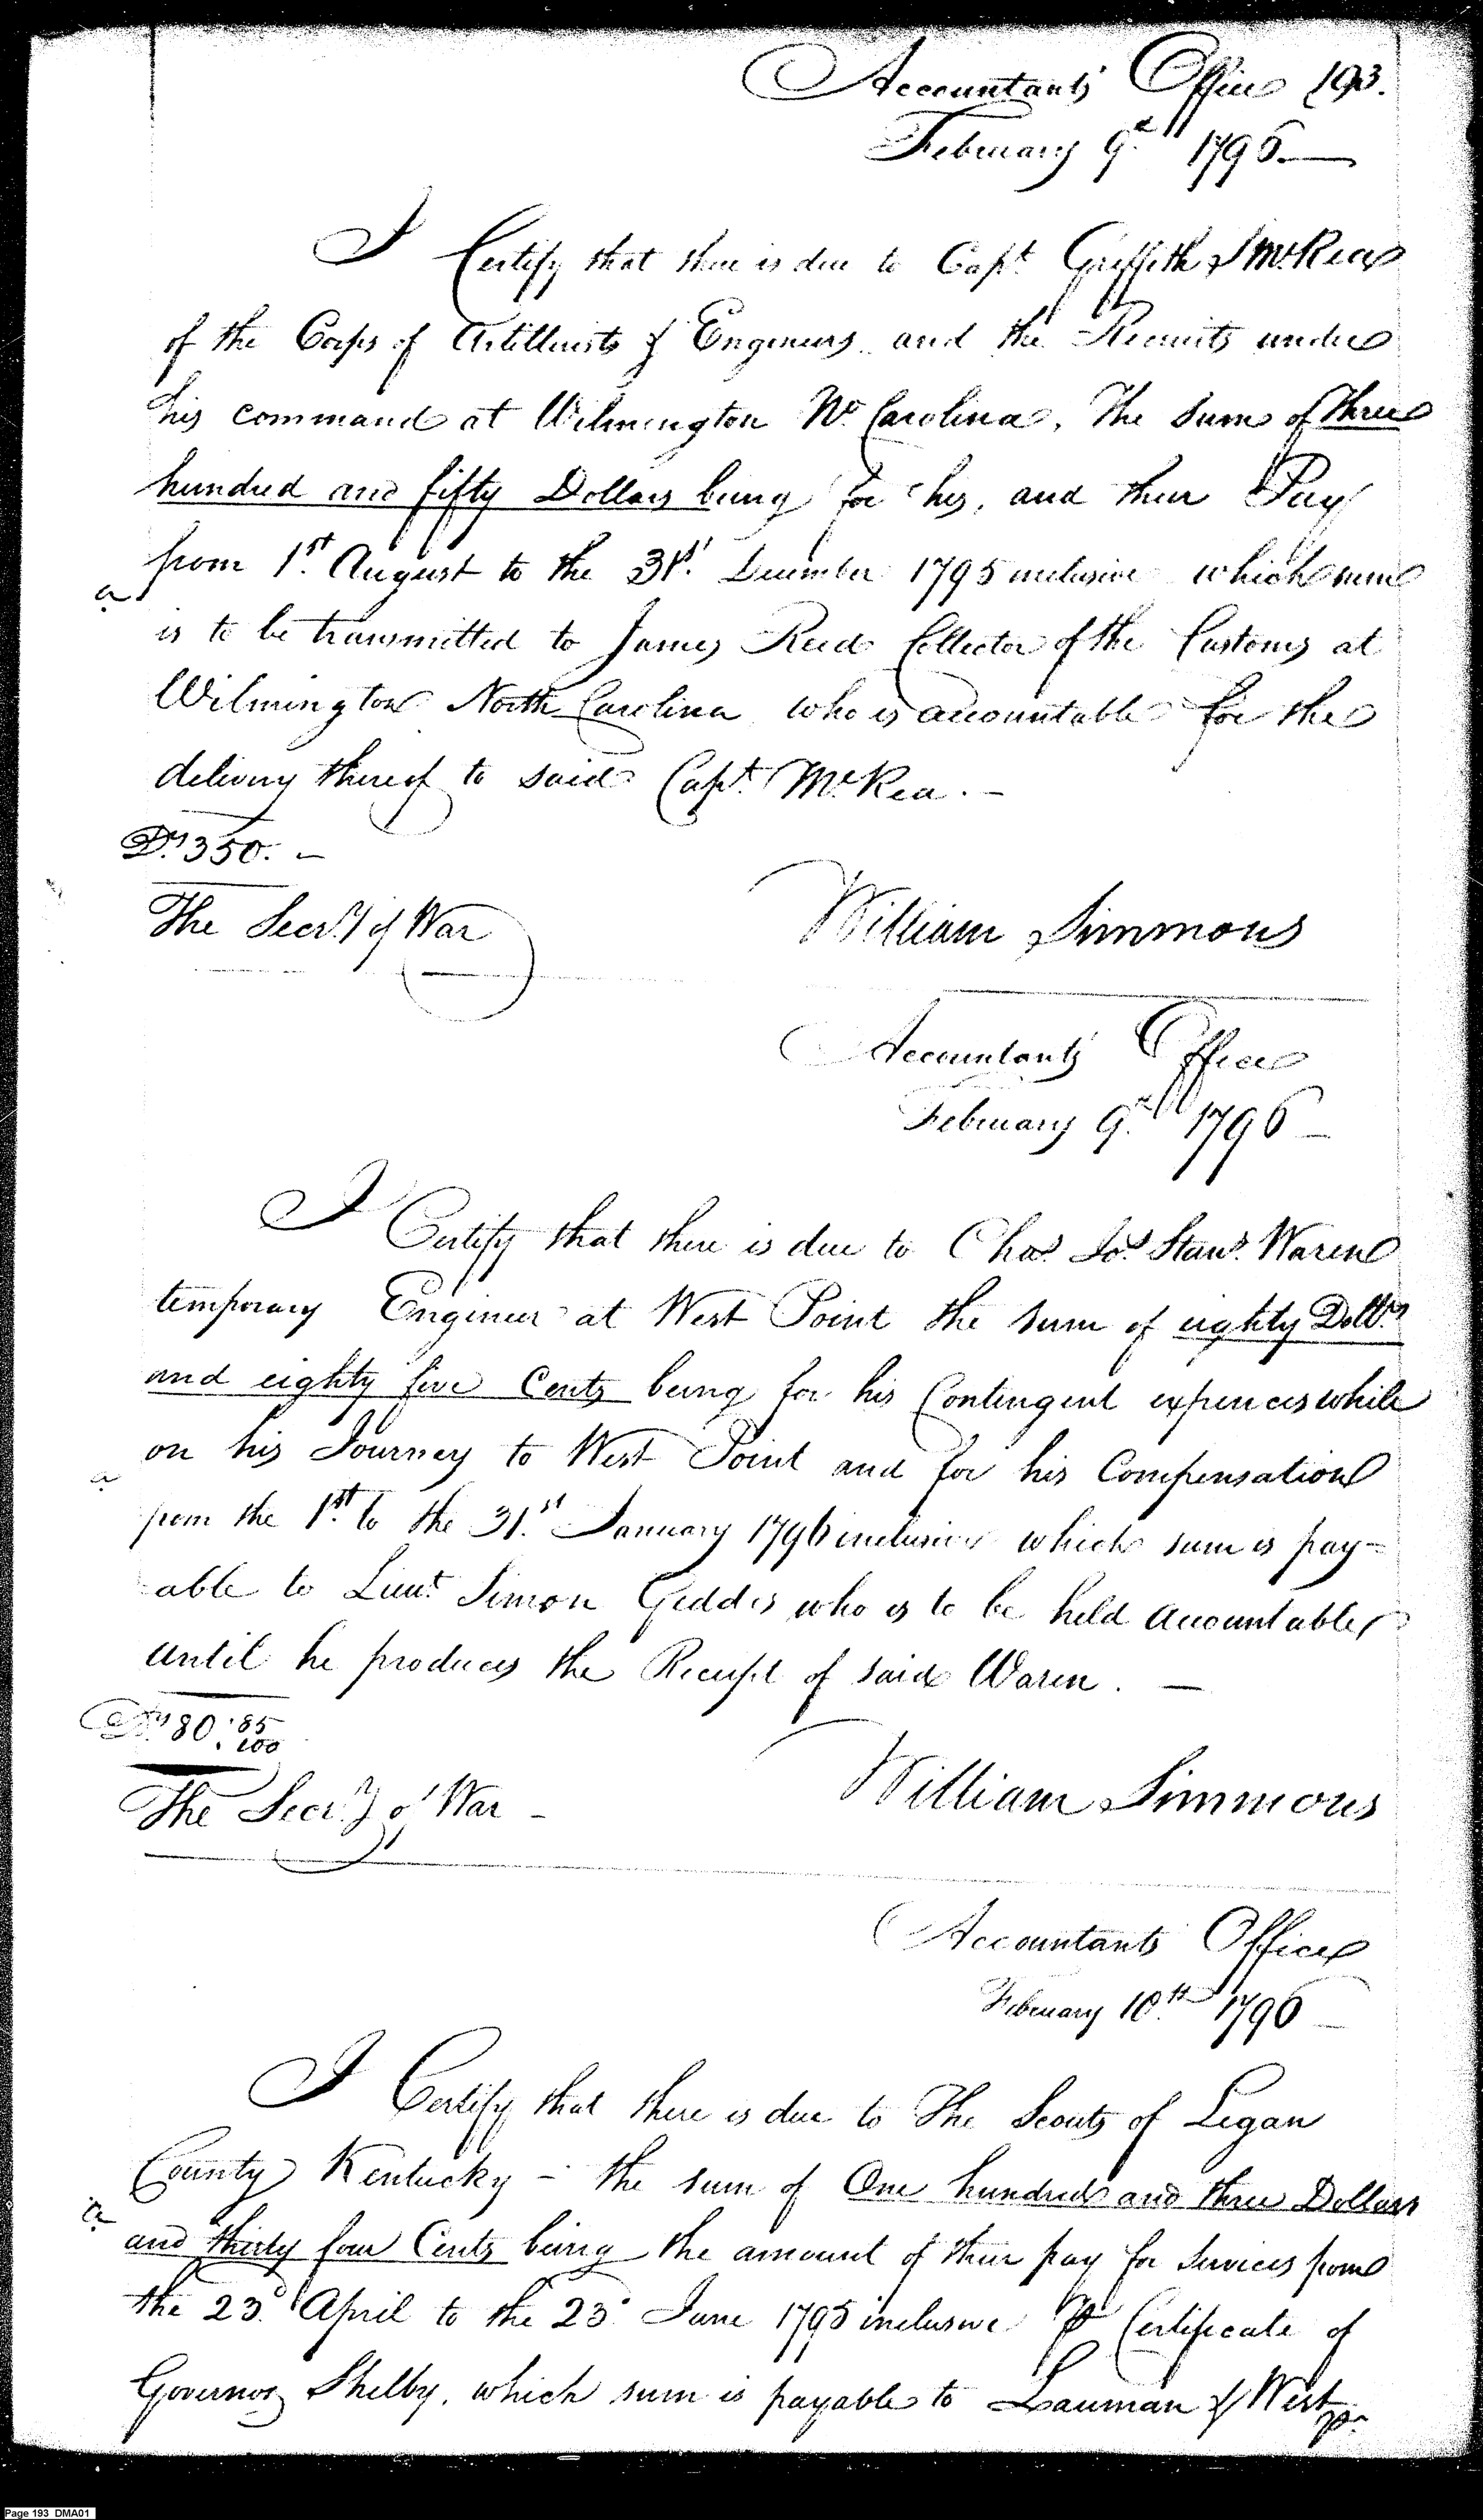 Accountants Office 193.
February 9th 1796.
I Certify that there is due to Capt. Griffith J McRea
of the Corps of Artillerists & Engineers and the Recruits under
his command at Wilmington No. Carolina, The Sum of Three
hundred and fifty Dollars being for his, and their Pay
from 1st. August to the 31st. December 1795 inclusive which sum
a
is to be transmitted to James Reed Collector of the Customs at
Wilmington North Carolina who is accountable for the
delivery thereof to said Capt. McRea. -
Drs 350. -
The Secry of War
William Simmons
Accountants Office
February 9th 1796 -
I Certify that there is due to Chas. Jos. Stans. Waren
temporary Engineer at West Point the sum of eighty Dollrs
and eighty five Cents being for his Contingent expences while
on his Journey to West Point and for his Compensation
a
from the 1st. to the 31st. January 1796 inclusive which sum is pay=
able to Lieut. Simon Geddis who is to be held accountable
until he produces the Receipt of said Waren. -
Drs 80. 85/100
The Secry of War -
William Simmons
Accountants Office
February 10th 1796
I Certify that there is due to The Scouts of Logan
County Kentucky - the sum of One hundred and three Dollars
a
and thirty four Cents being the amount of their pay for Services from
the 23d. April to the 23d. June 1795 inclusive ⅌ Certificate of
Governor Shelby, which sum is payable to Lauman & West
Page 193 DMA01